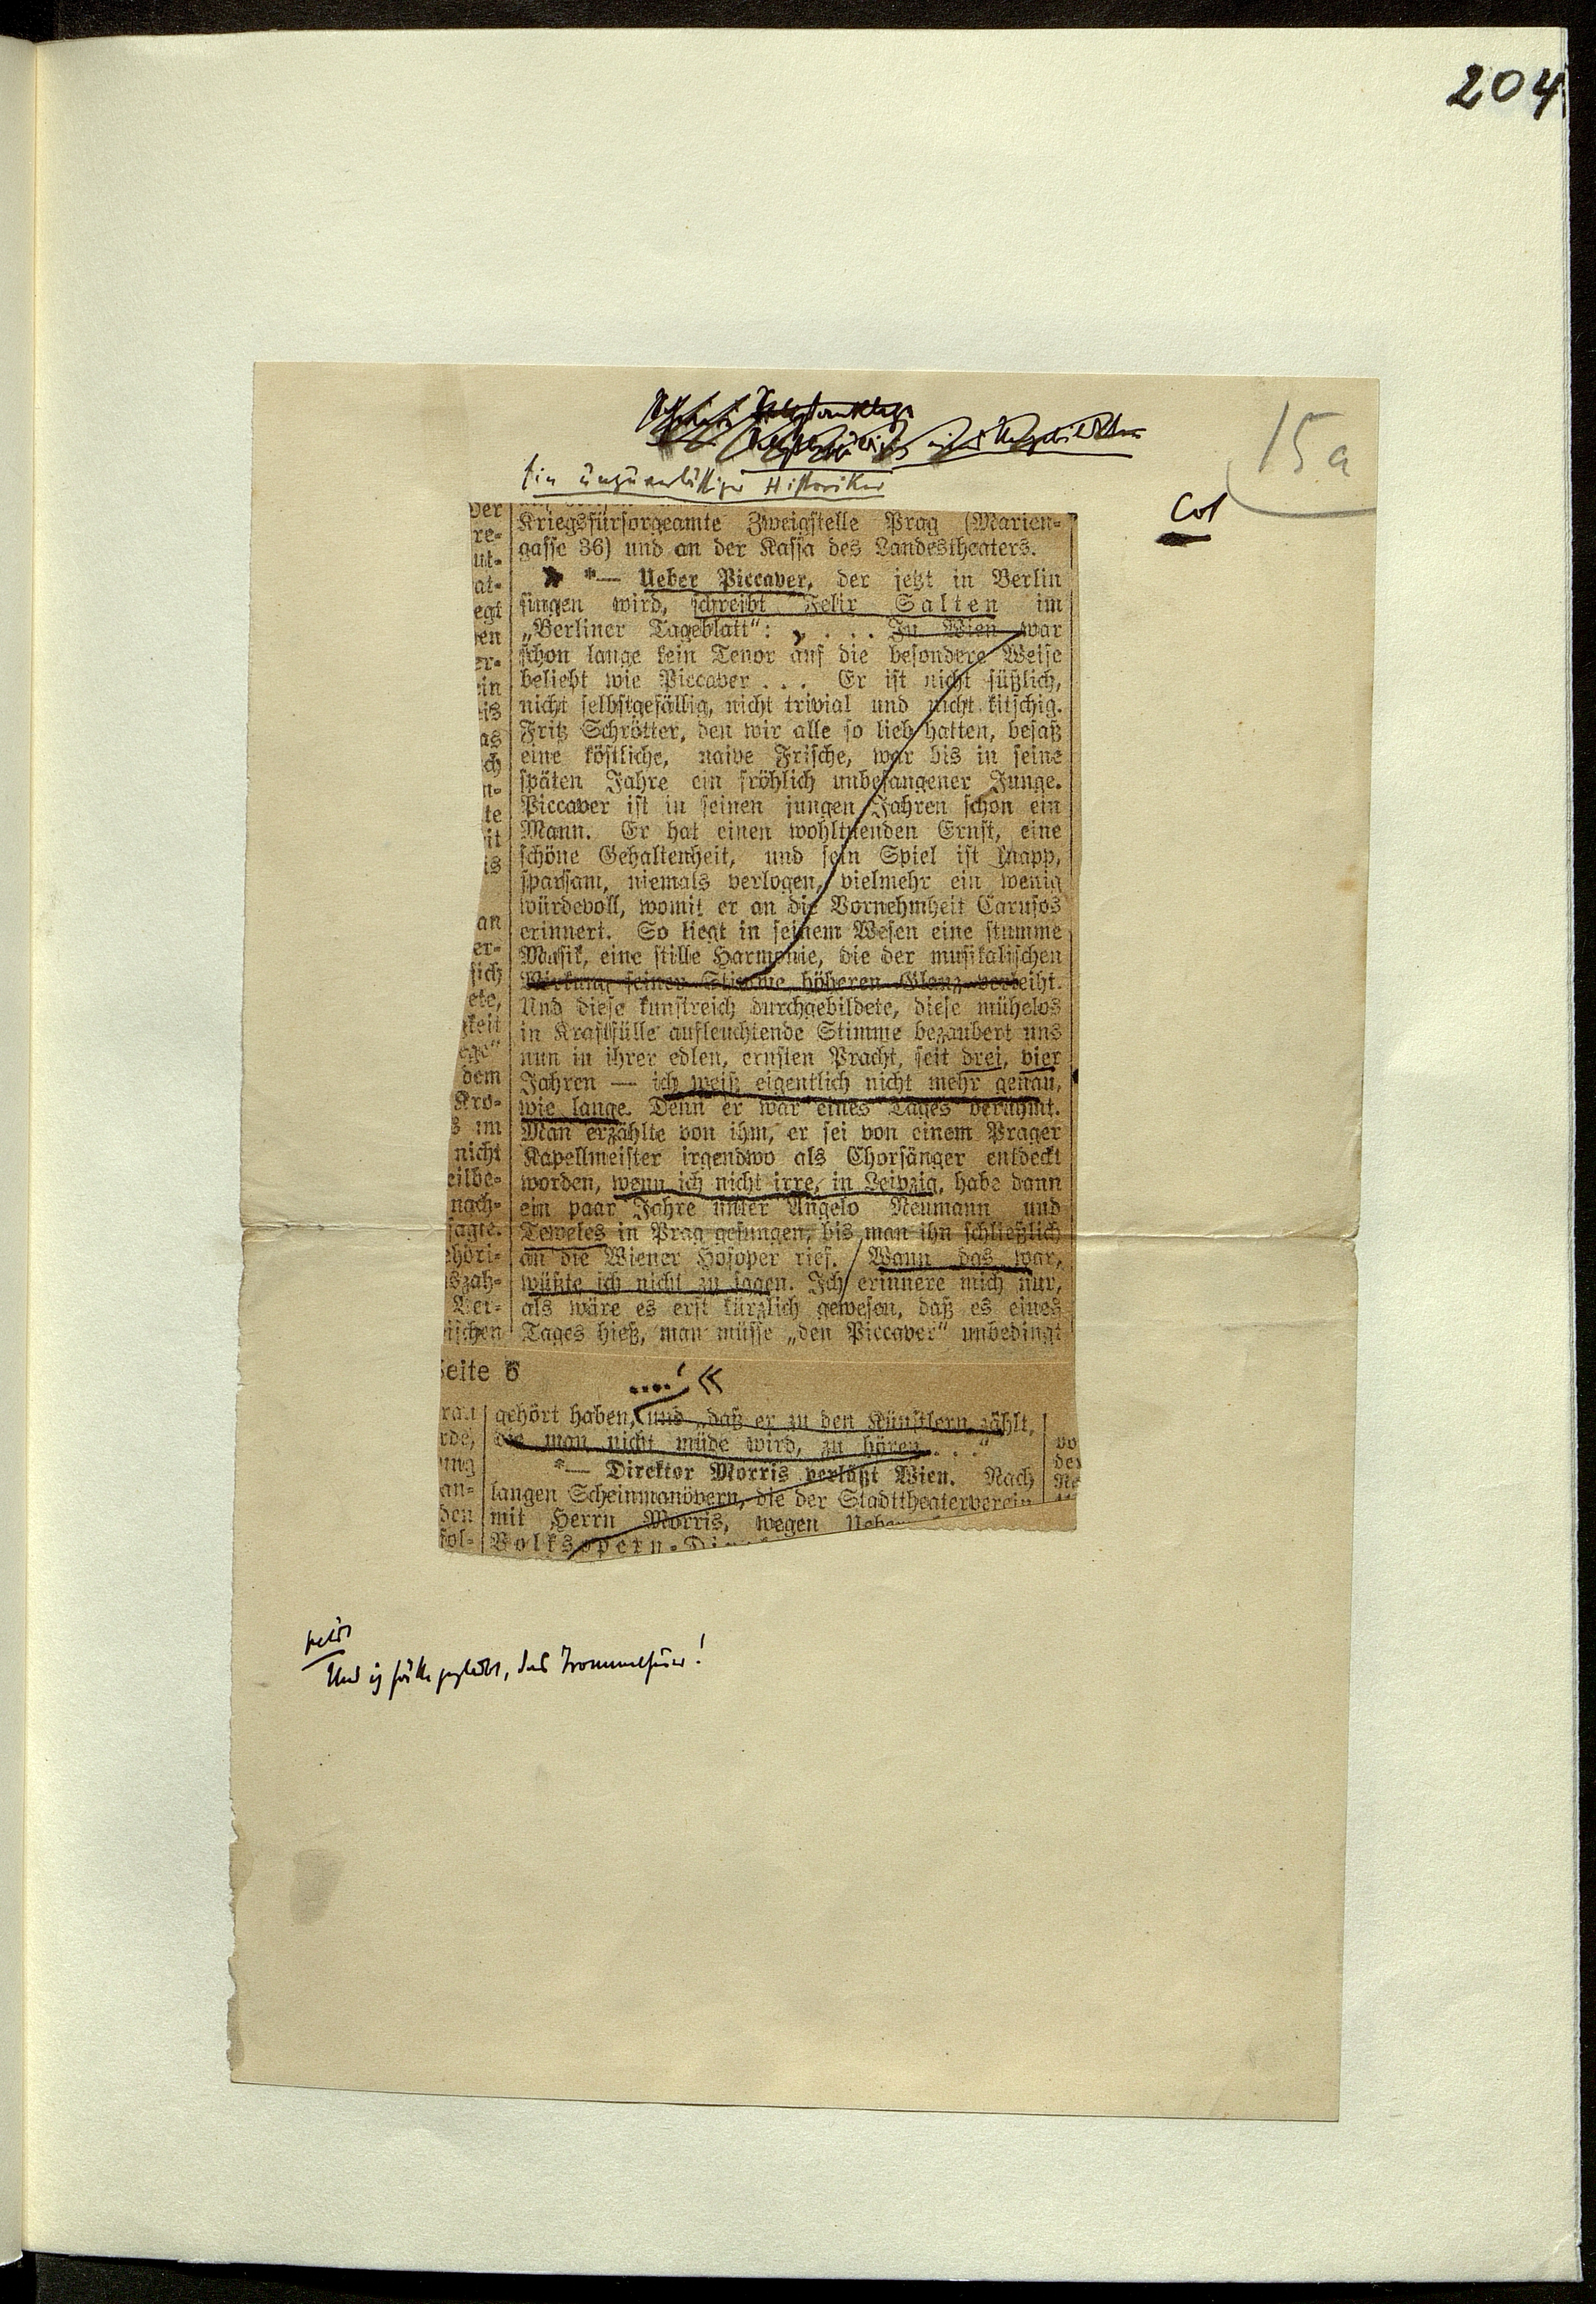 204
15a
Ein unzuverlässiger Historiker
Col
Kriegsfürsorgeamte Zweigstelle Prag (Marien-
gasse 36) und an der Kassa des Landestheaters.
*— Ueber Piccaver, der jetzt in Berlin
singen wird, schreibt Felix Salten im
„Berliner Tageblatt“: . . . . In Wien war
schon lange kein Tenor auf die besondere Weise
beliebt wie Piccaver . . . Er ist nicht süßlich,
nicht selbstgefällig, nicht trivial und nicht kitschig.
Fritz Schrötter, den wir alle so lieb hatten, besaß
eine köstliche, naive Frische, war bis in seine
späten Jahre ein fröhlich unbefangener Junge.
Piccaver ist in seinen jungen Jahren schon ein
Mann. Er hat einen wohltuenden Ernst, eine
schöne Gehaltenheit, und sein Spiel ist knapp,
sparsam, niemals verlogen, vielmehr ein wenig
würdevoll, womit er an die Vornehmheit Carusos
erinnert. So liegt in seinem Wesen eine stumme
Musik, eine stille Harmonie, die der musikalischen
Wirkung seiner Stimme höheren Glanz verleiht.
Und diese kunstreich durchgebildete, diese mühelos
in Kraftfülle aufleuchtende Stimme bezaubert uns
nun in ihrer edlen, ernsten Pracht, seit drei, vier
Jahren — ich weiß eigentlich nicht mehr genau,
wie lange. Denn er war eines Tages berühmt.
Man erzählte von ihm, er sei von einem Prager
Kapellmeister irgendwo als Chorsänger entdeckt
worden, wenn ich nicht irre, in Leipzig, habe dann
ein paar Jahre unter Angelo Neumann und
Teweles in Prag gesungen, bis man ihn schließlich
an die Wiener Hofoper rief. Wann das war,
wüßte ich nicht zu sagen. Ich erinnere mich nur,
als wäre es erst kürzlich gewesen, daß es eines
Tages hieß, man müsse „den Piccaver“ unbedingt
Seite 6
....‘ «
gehört haben, und daß er zu den Künstlern zählt,
die man nicht müde wird, zu hören . . .“
*— Direktor Morris verläßt Wien. Nach
langen Scheinmanövern, die der Stadttheaterverein
mit Herrn Morris, wegen
Volksopern-
Und ich hätte geglaubt, das Trommelfeuer!